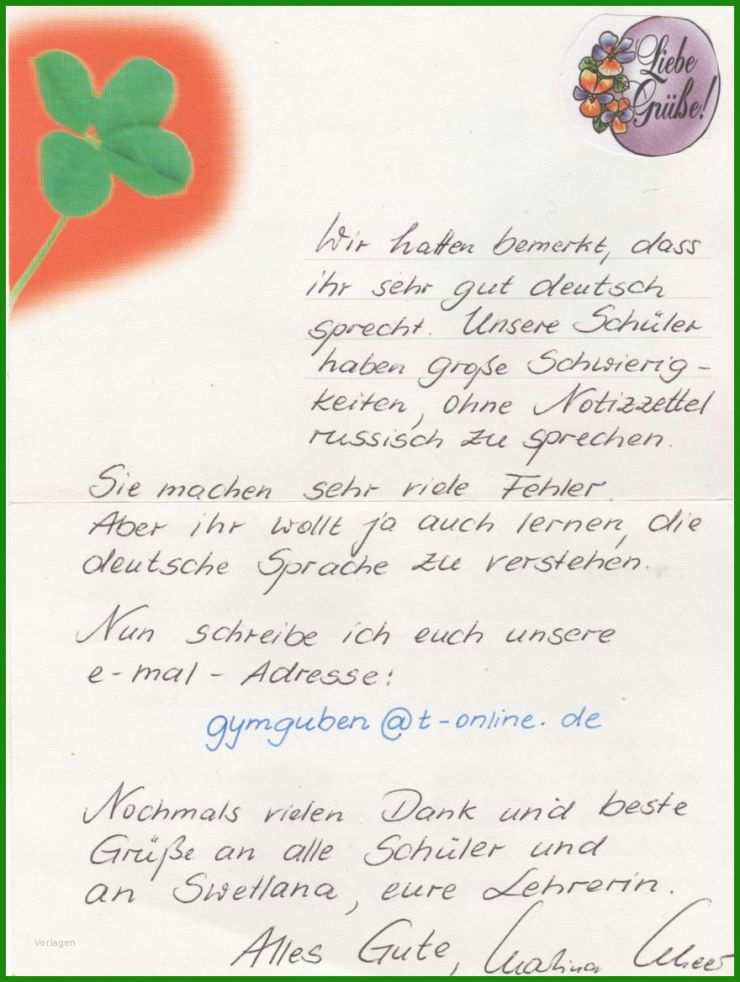 Liebe
Grüße!
Wir hatten bemerkt, dass
ihr sehr gut deutsch
sprecht. Unsere Schüler
haben große Schwierig-
keiten, ohne Notizzettel
russisch zu sprechen.
Sie machen sehr viele Fehler.
Aber ihr wollt ja auch lernen, die
deutsche Sprache zu verstehen.
Nun schreibe ich euch unsere
e-mal-Adresse:
gymguben@t-online.de
Nochmals vielen Dank und beste
Grüße an alle Schüler und
an Swetlana, eure Lehrerin.
Alles Gute,
Vorlagen